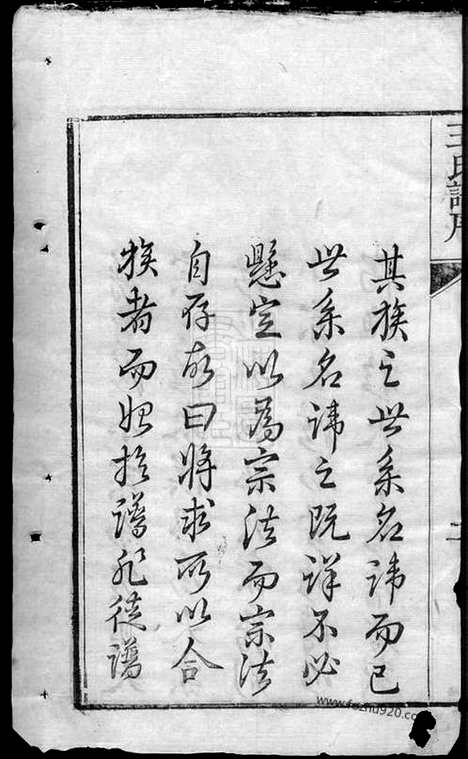 王氏譜序
其族之世系名諱而已
世系名諱之既詳不必
懸定以為宗法而宗法
自存故曰將求所以合
族者而始於譜非徒譜
www.fozhu920.com